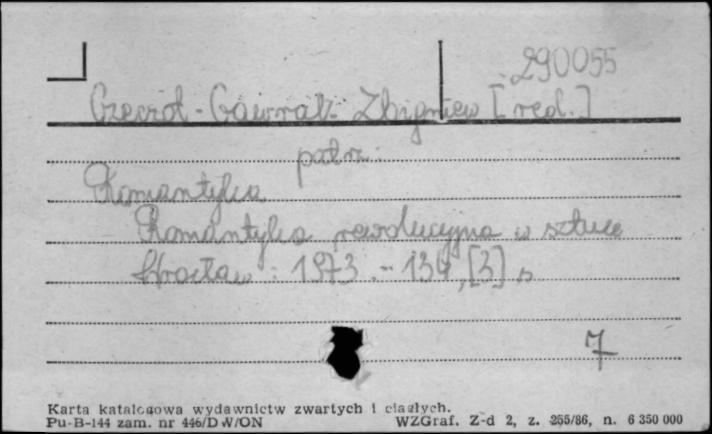 290055
Czeczot-Gawrak Zbigniew [red.]
patrz:
Romantyka
Romantyka rewolucyjna w sztuce
Wrocław : 1973. - 134, [3] s
7
Karta katalogowa wydawnictw zwartych i ciągłych.
Pu-B-144 zam. nr 446/DW/ON WZGraf. Z-d 2, z. 255/86, n. 6 350 000